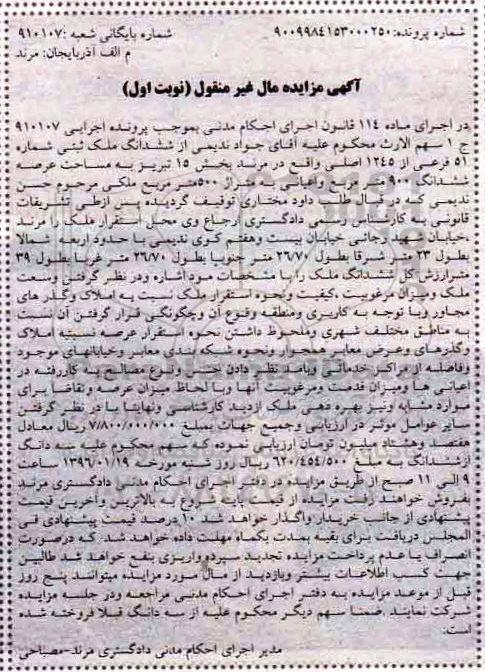 شماره پرونده: ۹۰۰۹۹۸۴۱۵۳۰۰۰۲۵۰ شماره بایگانی شعبه: ۹۱۰۱۰۷
م الف آذربایجان: مرند
آگهی مزایده مال غیر منقول (نوبت اول)
در اجرای ماده ۱۱۴ قانون اجرای احکام مدنی بموجب پرونده اجرایی ۹۱۰۱۰۷
ج ۱ سهم الارث محکوم علیه آقای جواد ندیمی از ششدانگ ملک ثبتی شماره
۵۱ فرعی از ۱۲۴۵ اصلی واقع در مرند بخش ۱۵ تبریز به مساحت عرصه
ششدانگ ۹۰۰ متر مربع واعیانی به متراژ ۵۰۰متر مربع ملکی مرحوم حسن
ندیمی که در قبال طلب داود مختاری توقیف گردیده پس ازطی تشریفات
قانونی به کارشناس رسمی دادگستری ارجاع وی محل استقرار ملک را مرند
،خیابان شهید رجائی خیابان بیست وهفتم کوی ندیمی با حدود اربعه شمالا
بطول ۲۳ متر شرقا بطول ۲۶/۷۰ متر جنوبا بطول ۲۶/۷۰ غربا بطول ۳۹
مترارزش کل ششدانگ ملک را با مشخصات مورد اشاره ودر نظر گرفتن وسعت
ملک ومیزان مرغوبیت ،کیفیت ونحوه استقرار ملک نسبت به املاک وگذر های
مجاور وبا توجه به کاربری ومنطقه وقوع آن وچگونگی قرار گرفتن آن نسبت
به مناطق مختلف شهری وملحوظ داشتن نحوه استقرار عرصه نسبت املاک
وگذرهای وعرض معابر همجوار ونحوه شبکه بندی معابر وخیابانهای موجود
وفاصله از مراکز خدماتی وبامد نظر دادن جنس ونوع مصالح به کاررفته در
اعیانی ها ومیزان قدمت ومرغوبیت آنها وبا لحاظ میزان عرضه وتقاضا برای
موارد مشابه ونیز بهره دهی ملک ازدید کارشناسی ونهایتا با در نظر گرفتن
سایر عوامل موثر در ارزیابی وجمیع جهات بمبلغ ۷/۸۰۰/۰۰۰/۰۰۰ ریال معادل
هفتصد وهشتاد میلیون تومان ارزیابی نموده که سهم محکوم علیه سه دانگ
ازششدانگ به مبلغ ۶۲۰/۴۵۴/۵۰۰ ریال روز شنبه مورخه ۱۳۹۶/۰۱/۱۹ ساعت
۹ الی ۱۱ صبح از طریق مزایده در دفتر اجرای احکام مدنی دادگستری مرند
بفروش خواهند رفت مزایده از قیمت پایه شروع به بالاترین واخرین قیمت
پیشنهادی از جانب خریدار واگذار خواهد شد ۱۰ درصد قیمت پیشنهادی فی
المجلس دریافت برای بقیه بمدت یکماه مهلت داده خواهد شد که درصورت
انصراف یا عدم پرداخت مزایده تجدید سپرده واریزی بنفع خواهد شد طالبین
جهت کسب اطلاعات بیشتر وبازدید از مال مورد مزایده میتوانند پنج روز
قبل از موعد مزایده به دفتر اجرای احکام مدنی مراجعه ودر جلسه مزایده
شرکت نمایند .ضمنا سهم دیگر محکوم علیه از سه دانگ قبلا فروخته شده
است:
مدیر اجرای احکام مدنی دادگستری مرند-مصباحی